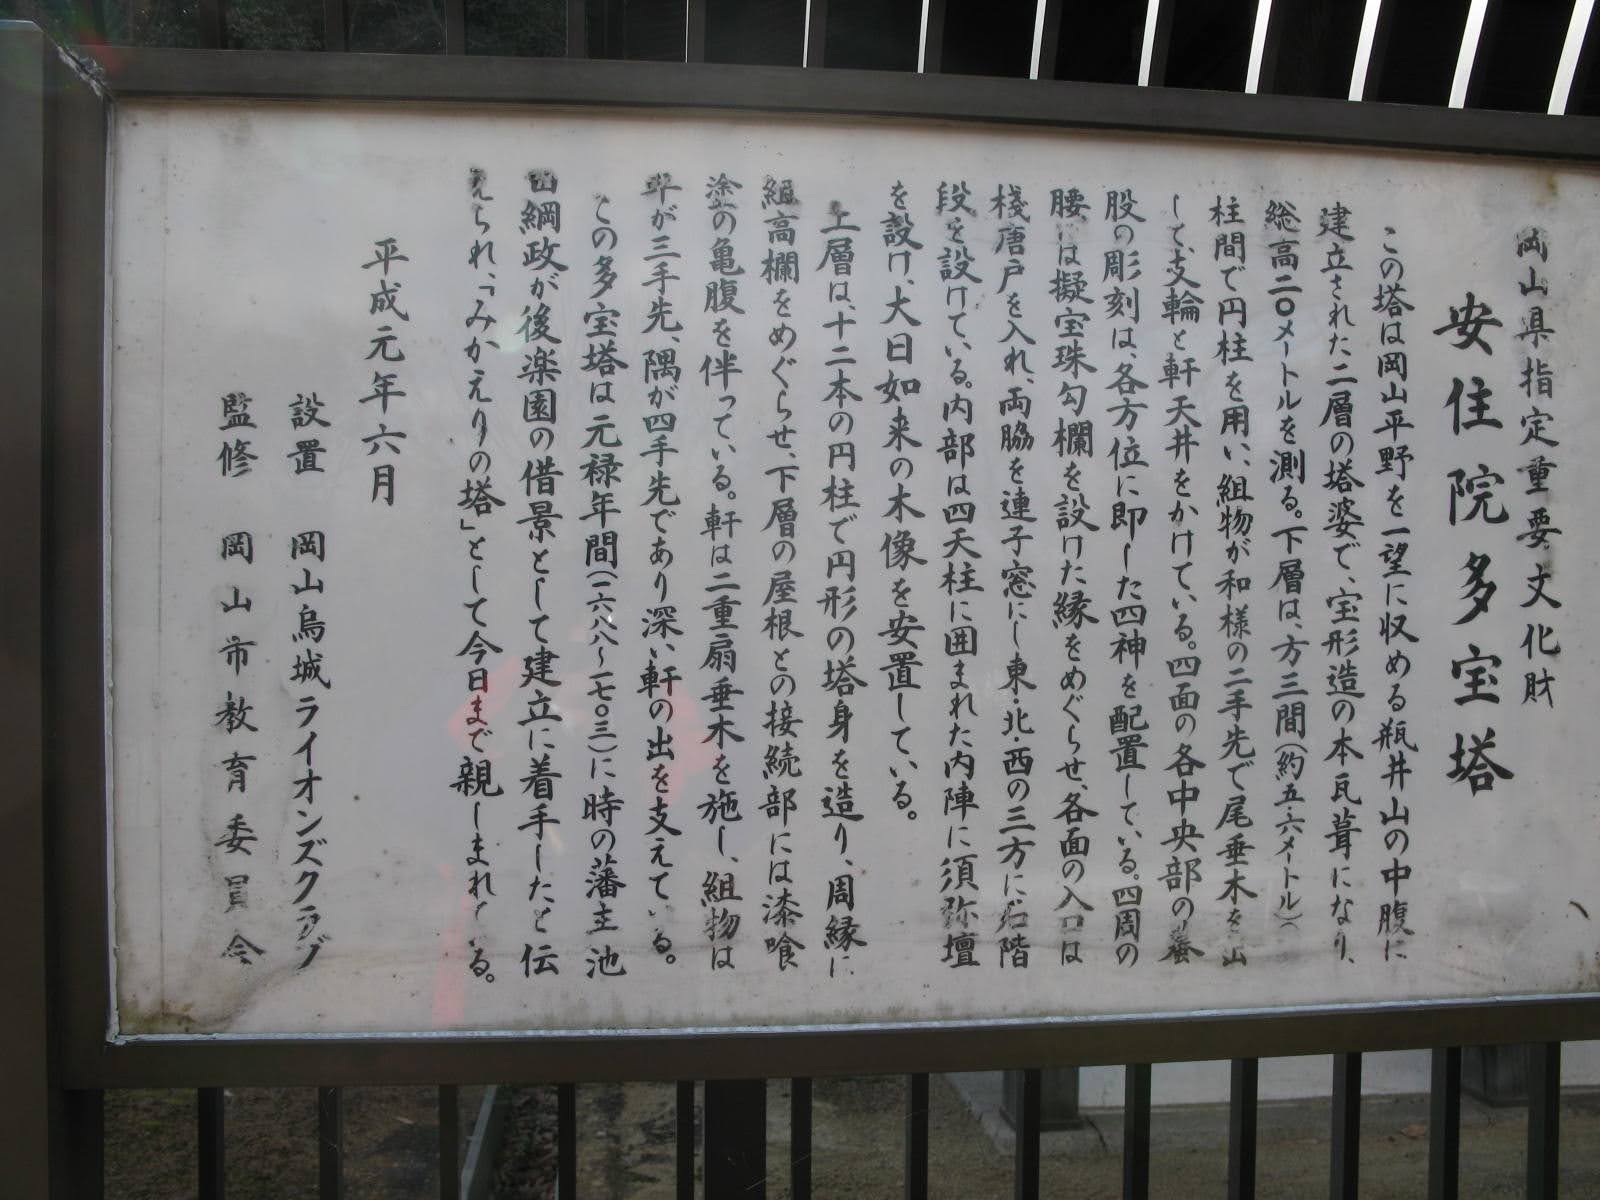 岡山県指定重要文化財
安住院多宝塔
この塔は岡山平野を一望に収める瓶井山の中腹に
建立された二層の塔婆で、宝形造の本瓦葺になり、
総高二〇メートルを測る。下層は、方三間(約五・六メートル)
柱間で円柱を用い、組物が和様の二手先で尾垂木を出
して、支輪と軒天井をかけている。四面の各中央部の蟇
股の彫刻は、各方位に即した四神を配置している。四周の
腰には擬宝珠勾欄を設けた縁をめぐらせ、各面の入口は
棧唐戸を入れ、両脇を連子窓にし東・北・西の三方に石階
段を設けている。内部は四天柱に囲まれた内陣に須弥壇
を設け、大日如来の木像を安置している。
上層は、十二本の円柱で円形の塔身を造り、周縁に
組高欄をめぐらせ、下層の屋根との接続部には漆喰
塗の亀腹を伴っている。軒は二重扇垂木を施し、組物は
平が三手先、隅が四手先であり深い軒の出を支えている。
この多宝塔は元禄年間(一六八八〜一七〇三)に時の藩主池
田綱政が後楽園の借景として建立に着手したと伝
えられ、「みかえりの塔」として今日まで親しまれている。
平成元年六月
設置 岡山烏城ライオンズクラブ
監修 岡山市教育委員会